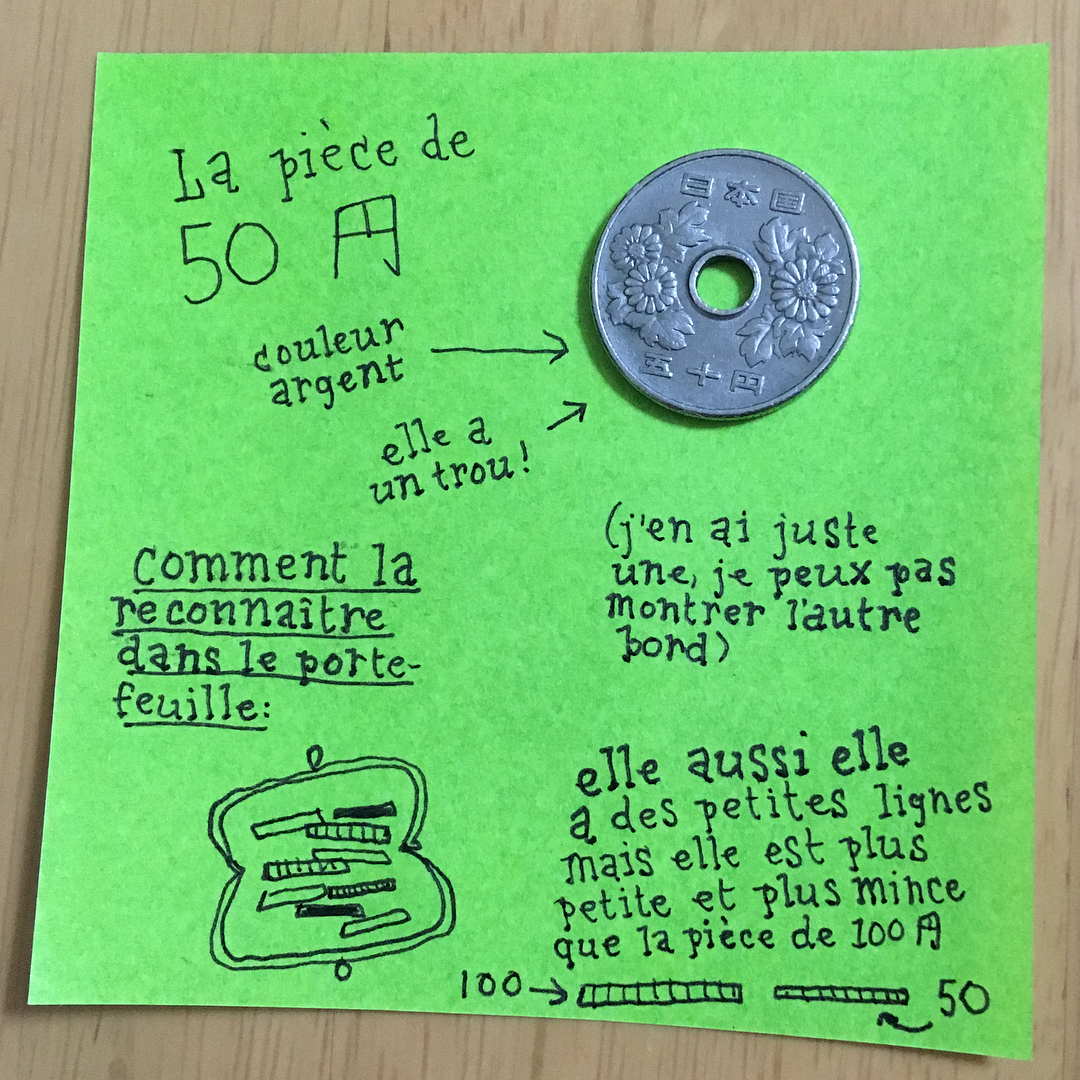 La pièce de
50 円
日本国
五十円
couleur
argent
elle a
un trou!
(j'en ai juste
une, je peux pas
montrer l'autre
bord)
comment la
reconnaître
dans le porte-
feuille:
elle aussi elle
a des petites lignes
mais elle est plus
petite et plus mince
que la pièce de 100 円
100
50